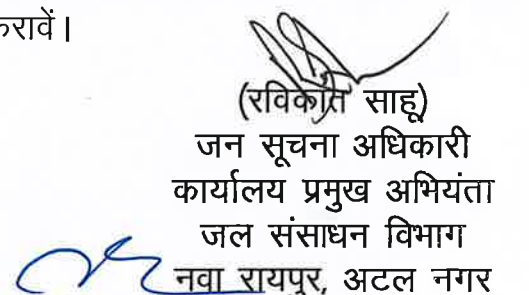 करावें।
(रविकांत साहू)
जन सूचना अधिकारी
कार्यालय प्रमुख अभियंता
जल संसाधन विभाग
नवा रायपुर, अटल नगर